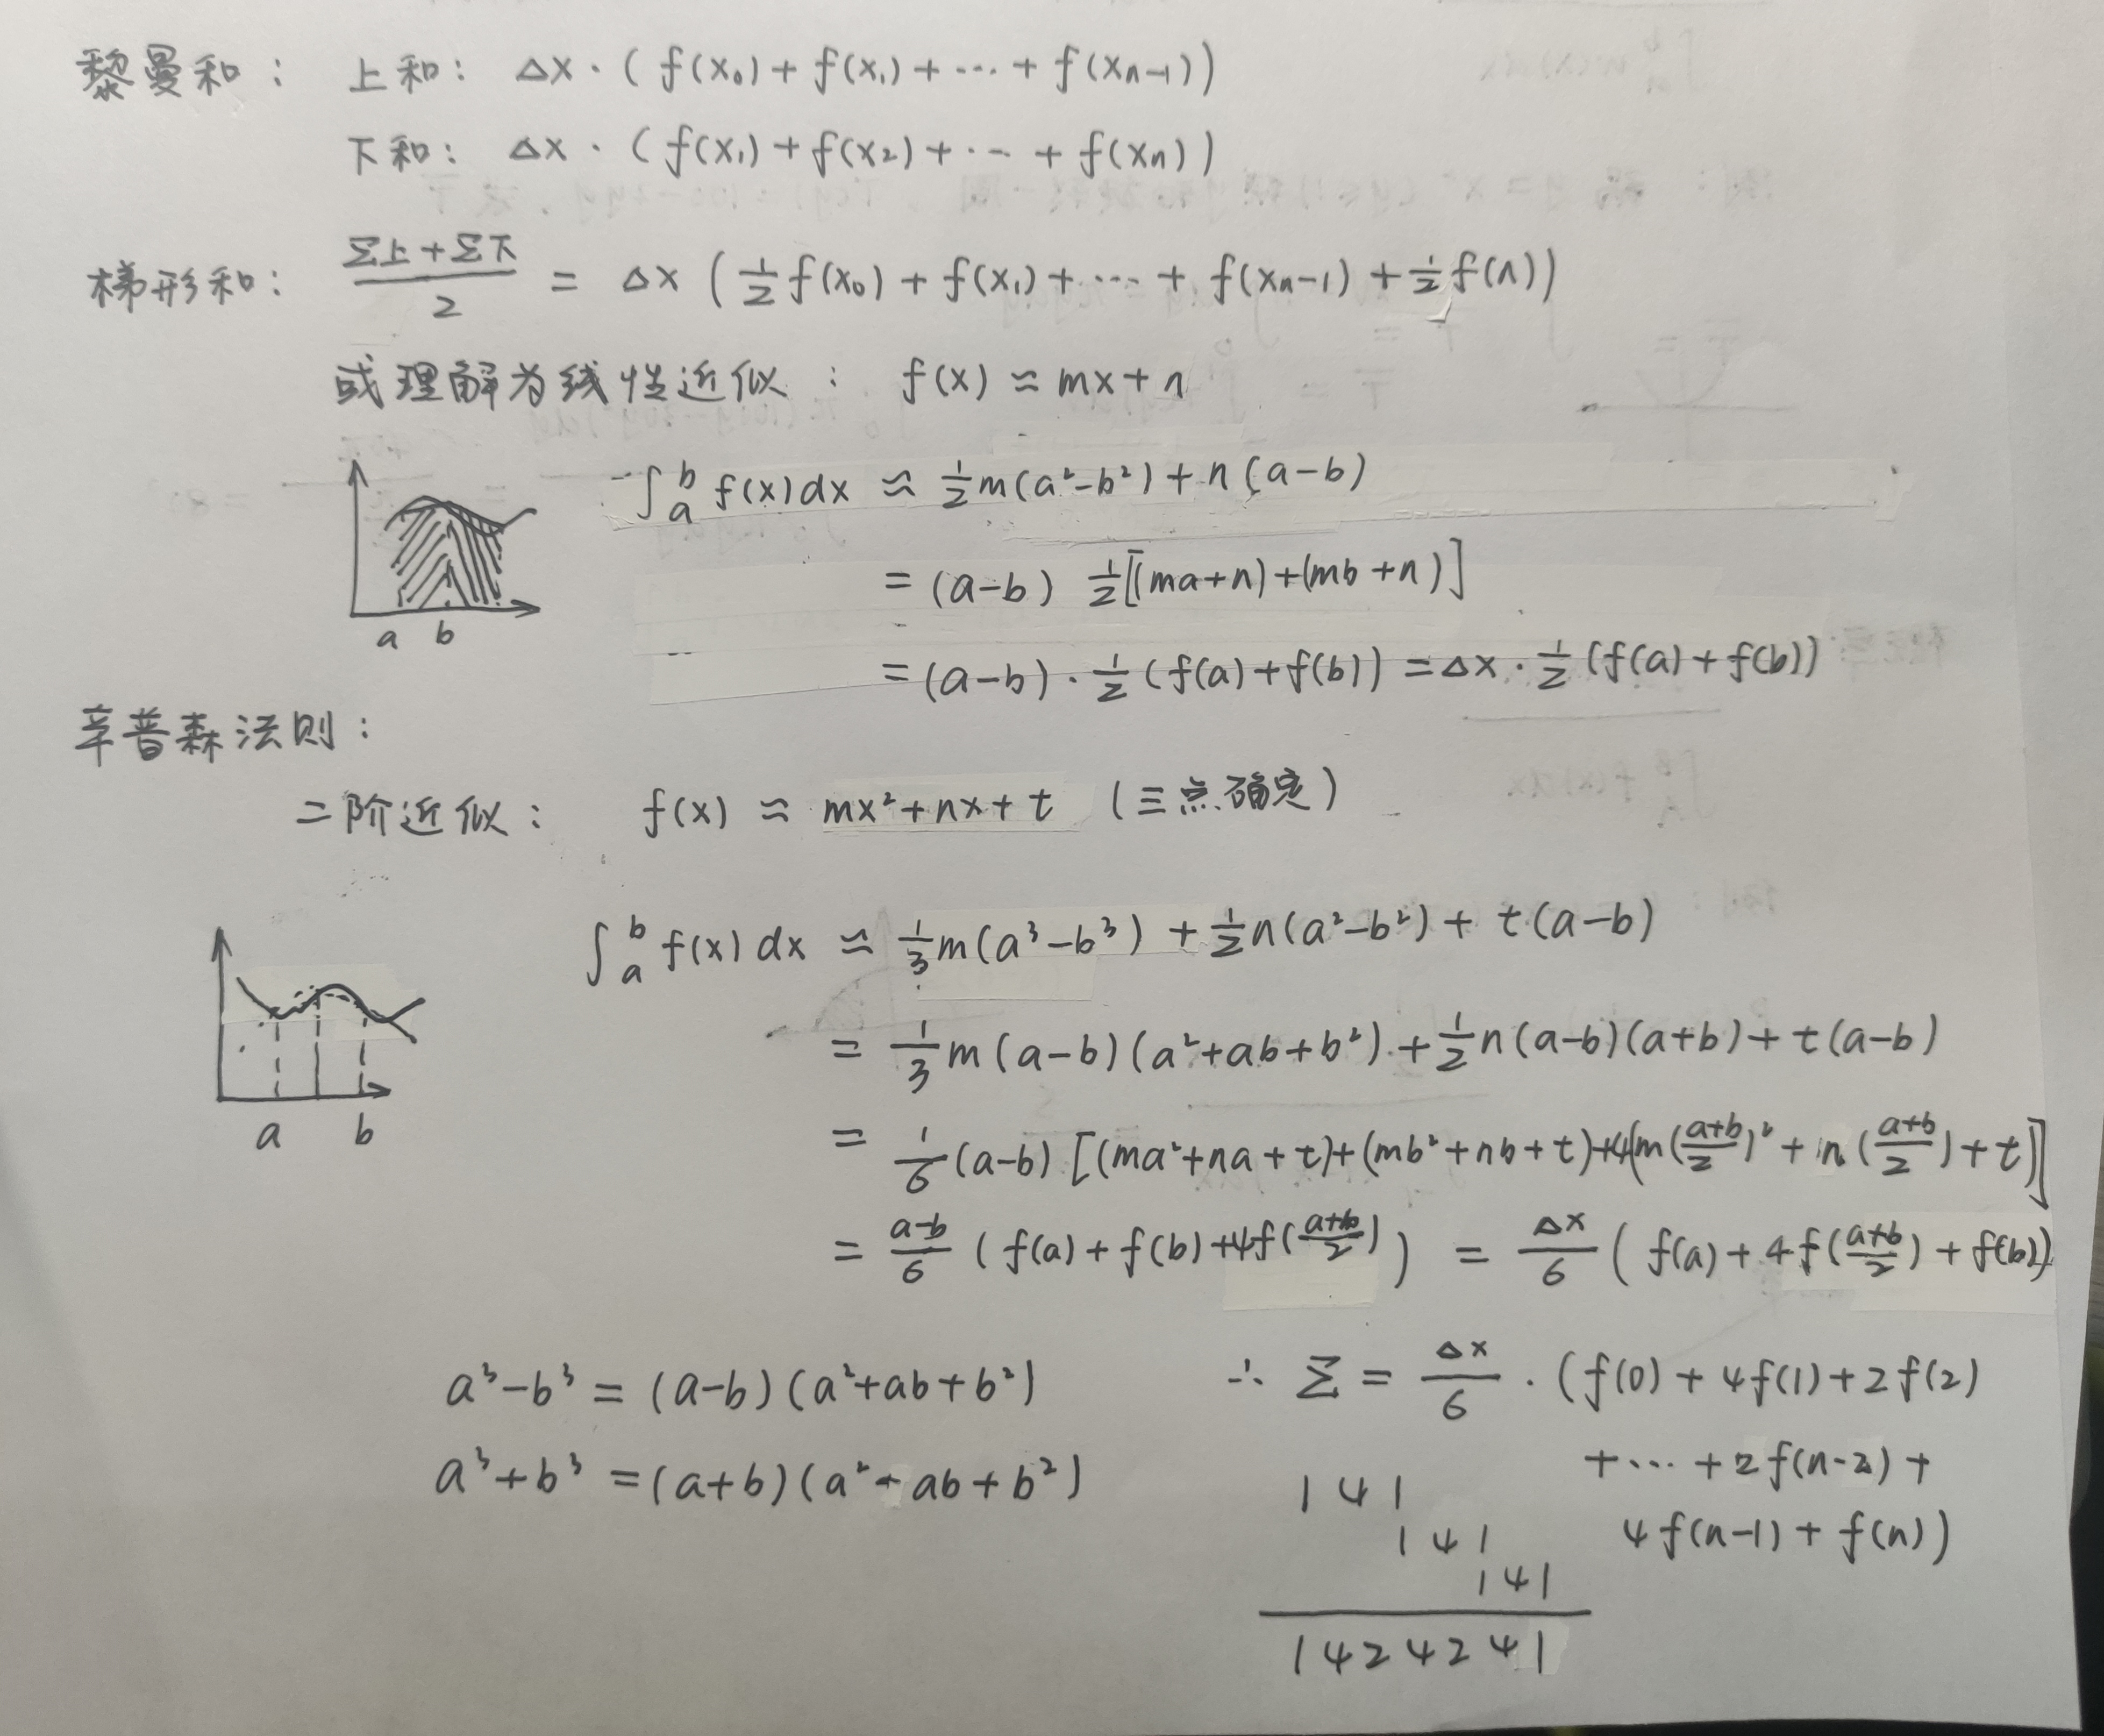 黎曼和: 上和: Δx · (f(x₀) + f(x₁) + ··· + f(xn−1))
下和: Δx · (f(x₁) + f(x₂) + ··· + f(xn))
梯形和: (Σ上 + Σ下)/2 = Δx (½ f(x₀) + f(x₁) + ··· + f(xn−1) + ½ f(n))
或理解为线性近似: f(x) ≈ mx + n
∫ₐᵇ f(x)dx ≈ ½m(a²−b²) + n(a−b)
= (a−b) ½[(ma+n)+(mb+n)]
a b
= (a−b) · ½ (f(a)+f(b)) = Δx · ½ (f(a)+f(b))
辛普森法则:
二阶近似: f(x) ≈ mx²+nx+t (三点确定)
∫ₐᵇ f(x)dx ≈ ⅓m(a³−b³) + ½n(a²−b²) + t(a−b)
= ⅓m(a−b)(a²+ab+b²) + ½n(a−b)(a+b) + t(a−b)
a b
= ⅙(a−b) [(ma²+na+t)+(mb²+nb+t)+4(m((a+b)/2)²+n((a+b)/2)+t)]
= (a−b)/6 (f(a)+f(b)+4f((a+b)/2)) = Δx/6 (f(a)+4f((a+b)/2)+f(b))
a³−b³ = (a−b)(a²+ab+b²)
a³+b³ = (a+b)(a²−ab+b²)
∴ Σ = Δx/6 · (f(0)+4f(1)+2f(2)
+···+2f(n−2)+
4f(n−1)+f(n))
1 4 1
1 4 1
1 4 1
1 4 2 4 2 4 1